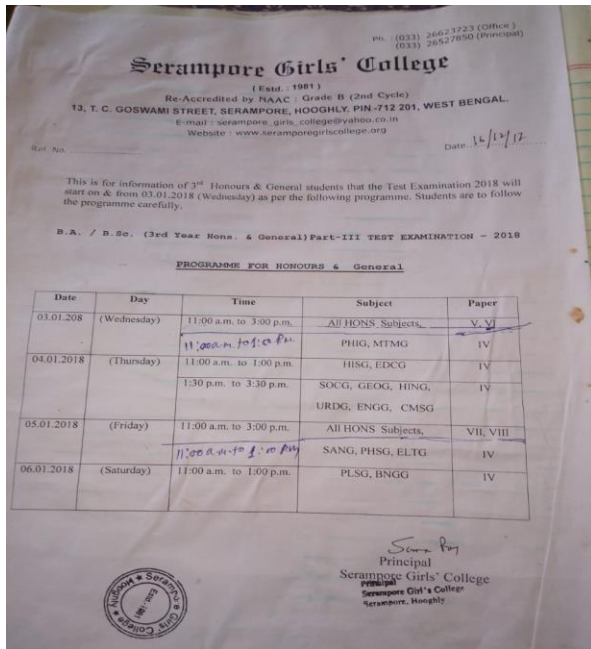 Ph. : (033) 26623723 (Office )
(033) 26527850 (Principal)
Serampore Girls' College
( Estd. : 1981 )
Re-Accredited by NAAC : Grade B (2nd Cycle)
13, T. C. GOSWAMI STREET, SERAMPORE, HOOGHLY. PIN-712 201, WEST BENGAL.
E-mail : serampore_girls_college@yahoo.co.in
Website : www.seramporegirlscollege.org
Ref. No.
Date 16/12/17
This is for information of 3rd Honours & General students that the Test Examination 2018 will
start on & from 03.01.2018 (Wednesday) as per the following programme. Students are to follow
the programme carefully.
B.A. / B.Sc. (3rd Year Hons. & General) Part-III TEST EXAMINATION – 2018
PROGRAMME FOR HONOURS & General
Date Day Time Subject Paper
03.01.208 (Wednesday) 11:00 a.m. to 3:00 p.m. All HONS Subjects, V, VI
11:00 a.m. to 1:00 P.m. PHIG, MTMG IV
04.01.2018 (Thursday) 11:00 a.m. to 1:00 p.m. HISG, EDCG IV
1:30 p.m. to 3:30 p.m. SOCG, GEOG, HING, IV
URDG, ENGG, CMSG
05.01.2018 (Friday) 11:00 a.m. to 3:00 p.m. All HONS Subjects, VII, VIII
11:00 a.m. to 1:00 p.m SANG, PHSG, ELTG IV
06.01.2018 (Saturday) 11:00 a.m. to 1:00 p.m. PLSG, BNGG IV
Principal
Serampore Girls' College
Principal
Serampore Girl's College
Serampore, Hooghly
Serampore Girls' College
Hooghly
Estd.-1981